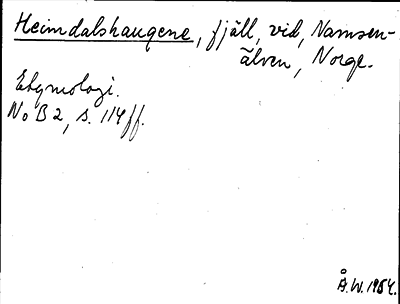 Heimdalshaugene, fjäll, vid, Namsen-
älven, Norge.
Etymologi.
NoB 2, s. 114 ff.
Å.W. 1984.